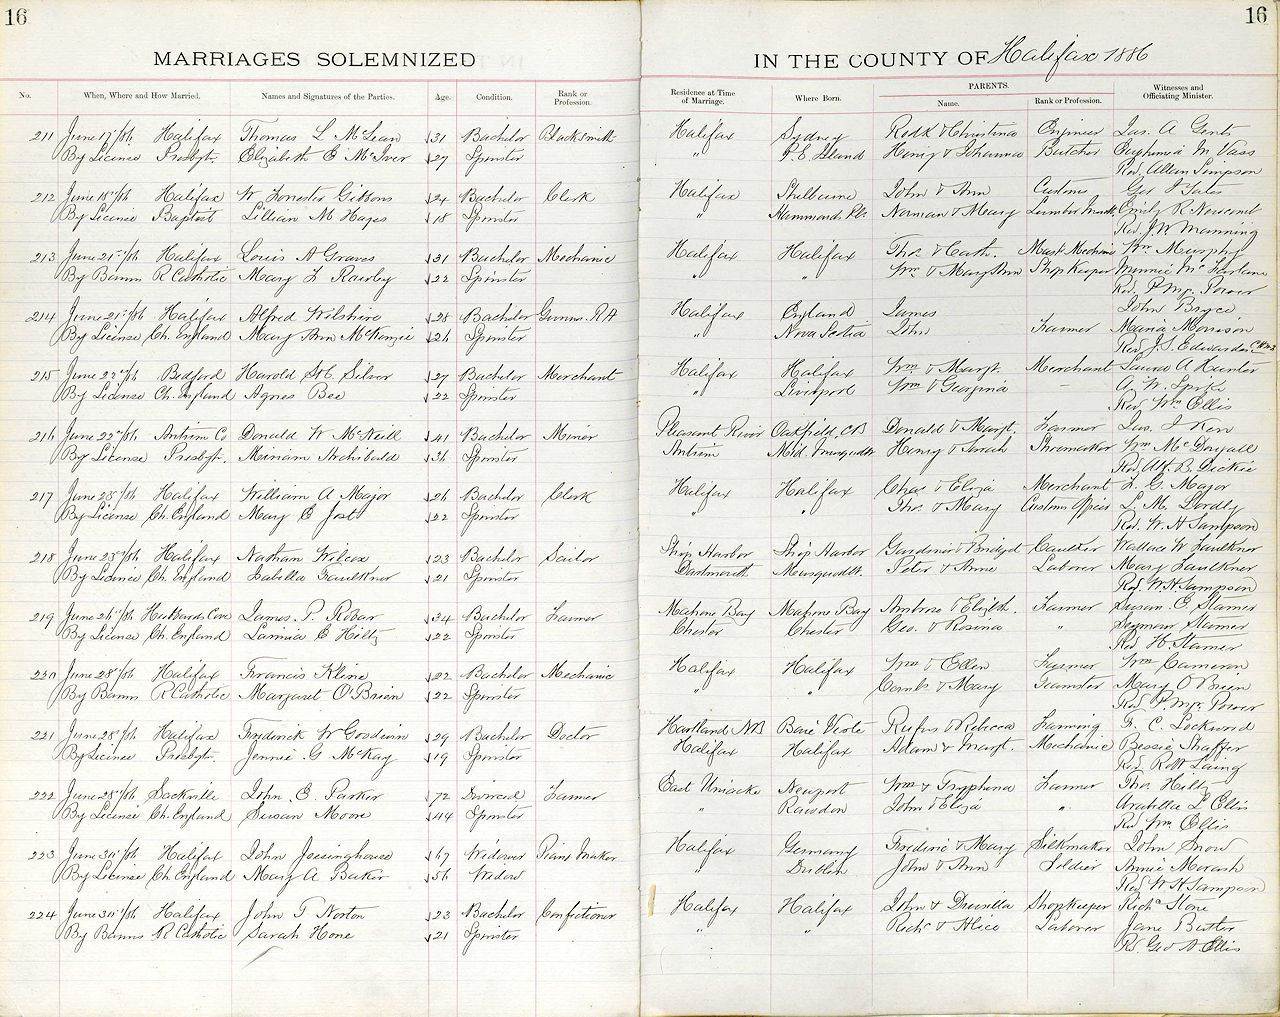 16
16
MARRIAGES SOLEMNIZED IN THE COUNTY OF Halifax 1886
No. When, Where and How Married. Names and Signatures of the Parties. Age. Condition. Rank or Profession. Residence at Time of Marriage. Where Born. PARENTS. Name. Rank or Profession. Witnesses and Officiating Minister.
211 June 17th/86 Halifax Thomas L McLean 31 Bachelor Blacksmith Halifax Sydney Rodk & Christina Engineer Jas. A Gents
By License Presbyt. Elizabeth C McIver 27 Spinster " P.E. Island Henry & Johanna Butcher Euphemia M Vass
Rev. Allan Simpson
212 June 18th/86 Halifax W Forrester Gibbons 24 Bachelor Clerk Halifax Shelburne John & Ann Customs Geo J Yates
By License Baptist Lillian M Hayes 18 Spinster " Hammonds Pls. Norman & Mary Lumber Emily R Newcomb
Rev J W Manning
213 June 21st/86 Halifax Louis A Graves 31 Bachelor Mechanic Halifax Halifax Thos & Cath. Mast. Mechanic Wm Murphy
By Banns R Catholic Mary F Rawley 22 Spinster " " Wm & Mary Ann Shop Keeper Minnie McFarlane
Rev. P Power
214 June 21st/86 Halifax Alfred Wilshire 28 Bachelor Gunner R.A Halifax England James John Bryce
By License Ch. England Mary Ann McKenzie 26 Spinster " Nova Scotia John Farmer Maria Morrison
Rev J.S. Edwards
215 June 22nd/86 Bedford Harold St C. Silver 27 Bachelor Merchant Halifax Halifax Wm & Margt. Merchant Laura A Hunter
By License Ch. England Agnes Bee 22 Spinster " Liverpool Wm & Georgina – A. W.
Rev. Wm Ellis
216 June 22nd/86 Antrim Co Donald W McNeill 41 Bachelor Miner Pleasant River Oakfield, CB Donald & Margt. Farmer Jas. J Ken
By License Presbyt. Miriam Archibald 36 Spinster Antrim Mid. Musquodt Henry & Sarah Shoemaker Wm McDougall
Rev. Alf. B. Dickie
217 June 23rd/86 Halifax William A Major 26 Bachelor Clerk Halifax Halifax Chas & Eliza Merchant F. G. Major
By License Ch. England Mary E Jost 22 Spinster " " Thos. & Mary Customs Officer L. M. Lordly
Rev. W. H Sampson
218 June 23rd/86 Halifax Nathan Wilcox 23 Bachelor Sailor Ship Harbor Ship Harbor Gardiner & Bridget Caulker Wallace W Faulkner
By License Ch. England Isabella Faulkner 21 Spinster Dartmouth Musquodt. Peter & Anne Laborer Mary Faulkner
Rev. W H Sampson
219 June 26th/86 Hubbards Cove James P. Robar 34 Bachelor Farmer Mahone Bay Mahone Bay Ambrose & Elizbth. Farmer Susan E Stamer
By License Ch. England Lamina E Hiltz 22 Spinster Chester Chester Geo. & Rosina " Seymour Stamer
Rev H. Stamer
220 June 28th/86 Halifax Francis Kline 22 Bachelor Mechanic Halifax Halifax Wm & Ellen Farmer Wm Cameron
By Banns R Catholic Margaret O'Brien 22 Spinster " " & Mary Teamster Mary O'Brien
Rev. P Power
221 June 28th/86 Halifax Frederick W Goodwin 29 Bachelor Doctor Hartland NB Baie Verte Rufus & Rebecca Farming F. C. Lockwood
By License Presbyt. Jennie G McKay 19 Spinster Halifax Halifax Adam & Margt. Mechanic Bessie Shaffer
Rev. Robt Laing
222 June 28th/86 Sackville John E. Parker 72 Divorced Farmer East Uniacke Newport Wm & Tryphena Farmer Thos Hills
By License Ch. England Susan Moore 44 Spinster " Rawdon John & Eliza " Arabella L Ellis
Rev Wm. Ellis
223 June 30th/86 Halifax John Joesinghouse 47 Widower Piano Maker Halifax Germany Frederic & Mary Silkmaker John Snow
By License Ch England Mary A Baker 56 Widow " Dublin John & Ann Soldier Annie Morash
Rev W H Sampson
224 June 30th/86 Halifax John T Norton 23 Bachelor Confectioner Halifax Halifax John & Drusilla Shopkeeper Richd Hone
By Banns R Catholic Sarah Hone 21 Spinster " " Richd & Alice Laborer Jane Butler
Rev. Geo A Ellis